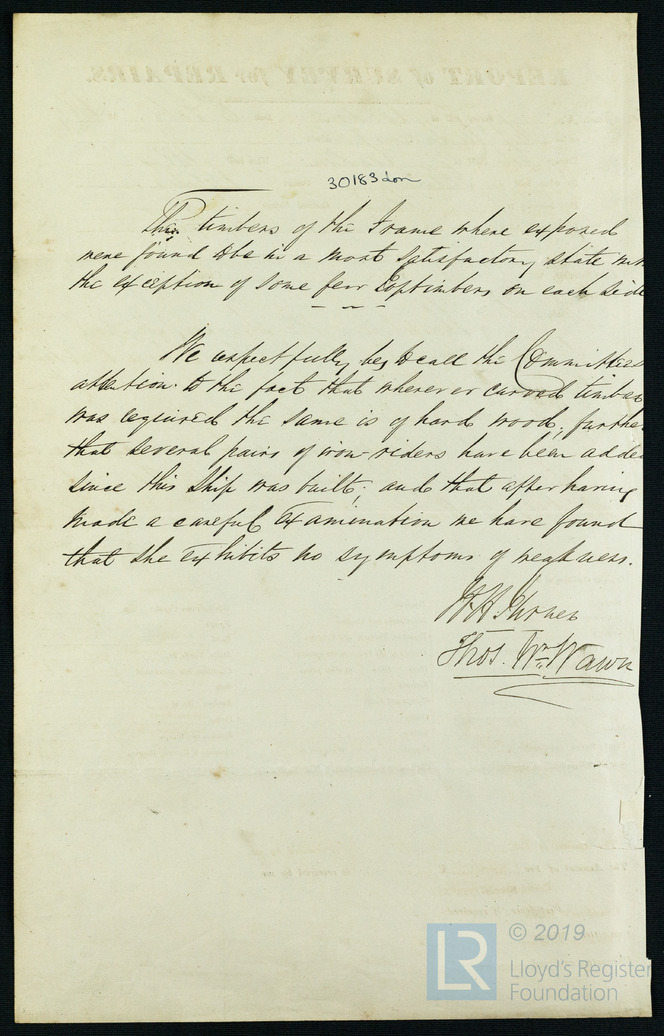 REPORT of SURVEY for REPAIRS.
30183 Lon
The timbers of the Frame where exposed
were found to be in a most satisfactory state with
the exception of some few Toptimbers on each side
We respectfully beg to call the Committees
attention to the fact that wherever curved timber
was required the same is of hard wood; further
that several pairs of iron riders have been added
since this Ship was built; and that after having
made a careful Examination we have found
that she exhibits no symptoms of weakness.
Thos. Wm. Wawn
© 2019
LR
Lloyd's Register
Foundation